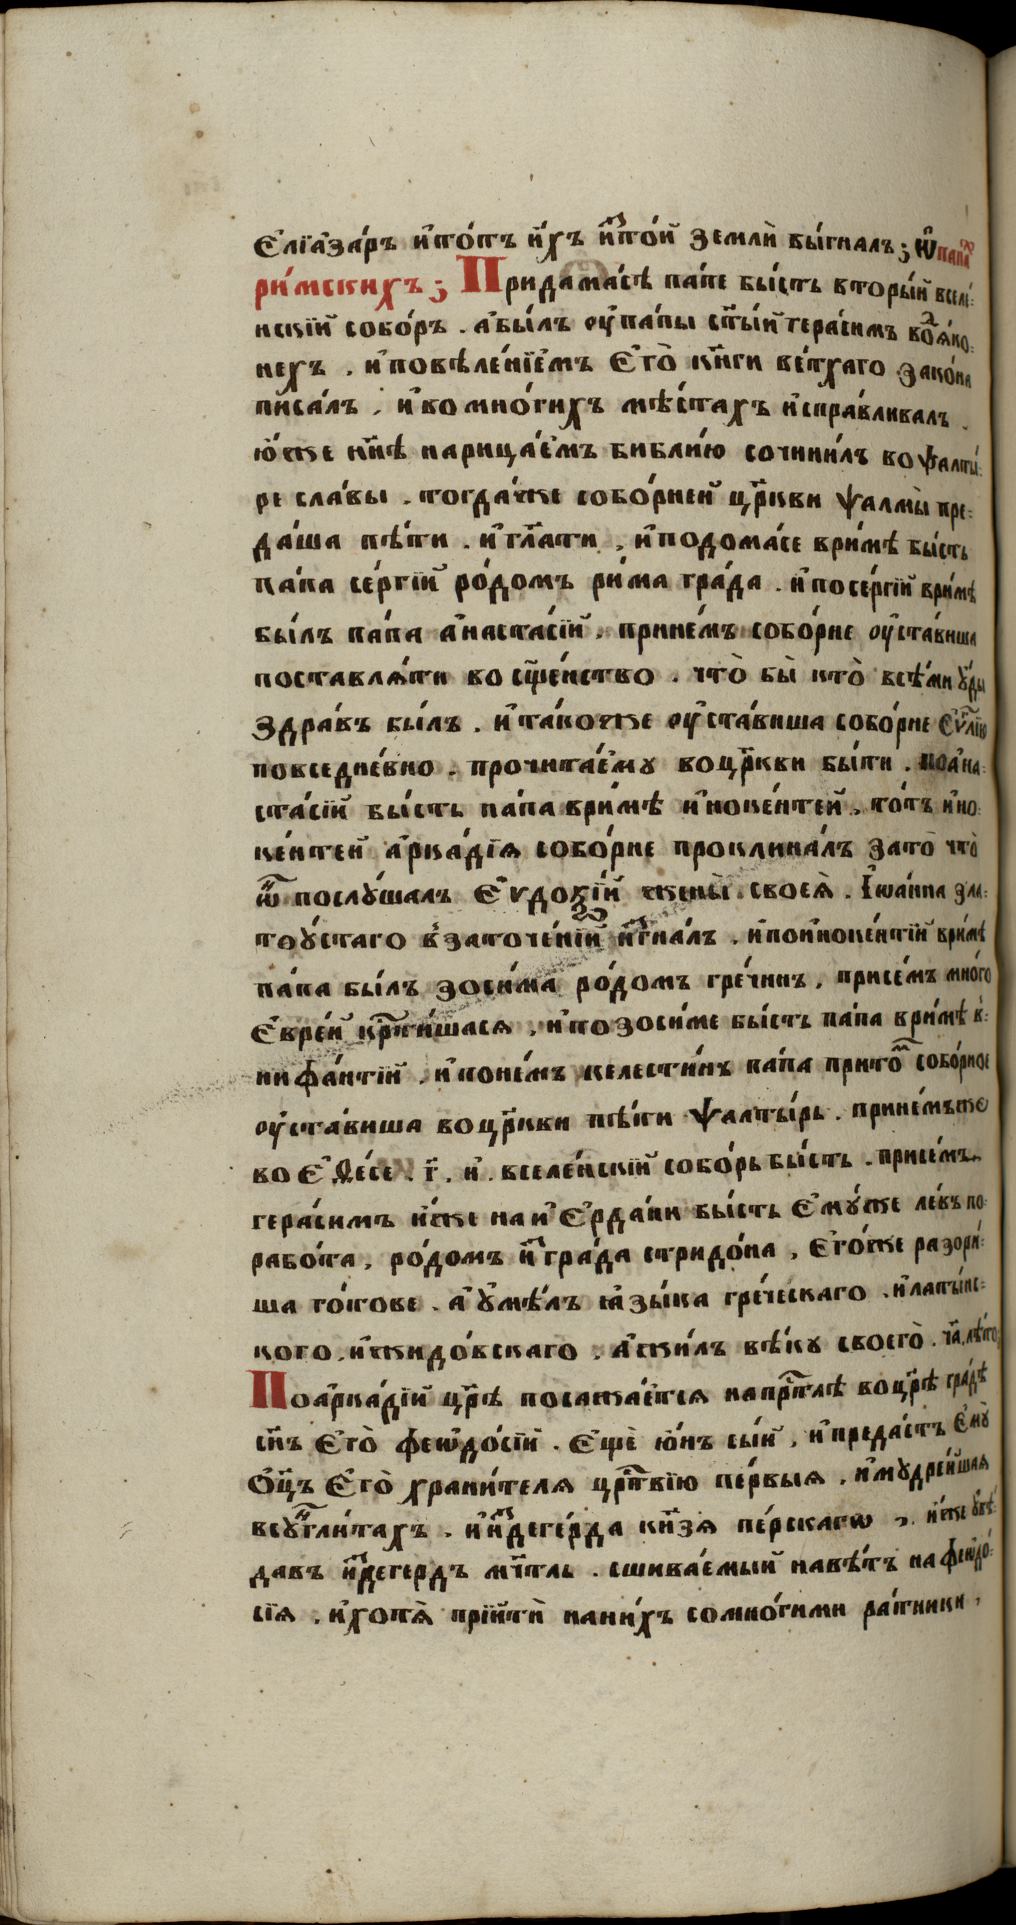 Е҆лїаза́ръ и҆то́тъ и҆́хъ и҆з̾то́й землѝ вы́гналъ; ѡ҆ папа́х
ри́мскихъ; Придама́сѣ па́пе бы́сть вторы́й вселе́-
нскїй собо́ръ. а҆бы́лъ ᲂу҆па́пы ст҃ы́й гера́симъ во дїя́ко-
нехъ. и҆повѣле́нїемъ Е҆го̀ кни҃ги ве́тхаго зако́на
писа́лъ, и҆во мно́гихъ мѣ́стахъ и҆спра́вливалъ.
ю҆́же нн҃ѣ нарица́емъ библи́ю сочини́лъ во ѱалты́-
ре сла́вы. тогда́же собо́рней цр҃кви ѱалмы̀ пре-
да́ша пѣ́ти. и҆гл҃ати, и҆подома́се в ри́мѣ бы́сть
па́па се́ргїй ро́домъ ри́ма гра́да. и҆посе́ргїй в ри́мѣ
бы́лъ па́па а҆наста́сїй. прине́мъ собо́рне ᲂу҆ста́виша
поставлѧ́ти во сщ҃е́нство. что̀ бы̀ кто̀ всѣ́ми ꙋ҆́ды
здра́въ бы́лъ. и҆та́коже ᲂу҆ста́виша собо́рне Е҆ѵⷢ҇лїю
повседне́вно. прочита́емꙋ воцр҃кви бы́ти. поа҆на-
ста́сїй бы́сть па́па в ри́мѣ и҆ноке́нтей, то́тъ и҆но-
ке́нтей а҆рка́дїѧ собо́рне проклина́лъ зато̀ что̀
ѿ послꙋ́шалъ Е҆ѵдокі́й жены̀ своеѧ̀. І҆ѡа́нна зла-
тоꙋ́стаго в заточе́нїй и҆згна́лъ. и҆пои҆ноке́нтїй в ри́мѣ
па́па бы́лъ зоси́ма ро́домъ гре́чинъ, присе́мъ мно́го
Е҆вре́й кр҃ти́шасѧ, и҆по зоси́ме бы́сть па́па в ри́мѣ в-
нифа́нтїй. и҆поне́мъ келести́нъ па́па прито́м собо́рное
ᲂу҆ста́виша воцр҃кви пѣ́ти ѱалты́рь. прине́мъже
во Е҆ѳе́се. г҃. и҆. вселе́нскїй собо́рь бы́сть. присе́мъ
гера́симъ и҆́же на и҆Е҆рда́ни бы́сть Е҆мꙋ́же ле́въ по-
рабо́та, ро́домъ и҆з̾гра́да стридо́на, Е҆го́же разори́-
ша го́тове. а҆ꙋ҆мѣ́лъ ꙗ҆зы́ка гре́ческаго. и҆латы́нс-
кого. и҆жидо́вскаго. а҆жи́лъ вѣ́кꙋ своего̀. ч҃а. лѣ́то;
Поа҆рка́дїй цр҃ѣ посажа́етсѧ напр҃тлѣ воцр҃ѣ гра́дѣ
сн҃ъ Е҆го̀ феѡдо́сїй. Е҆щѐ ю҆́нъ сы́й, и҆преда́стъ Е҆мꙋ̀
Ѻ҆ц҃ъ Е҆го̀ храни́телѧ црⷭ҇твїю пе́рвыѧ, и҆мꙋдре́йшаѧ
всꙋⷢ҇гли́тахъ. и҆и҆здеге́рда кн҃зѧ пе́рскагѡ, и҆́же ꙋ҆вѣ́-
давъ и҆здеге́рдъ мт҃ль. сшива́емый навѣ́тъ на феѡдо́-
сїѧ. и҆хотѧ̀ прїйтѝ нани́хъ сомно́гими ра́тники,